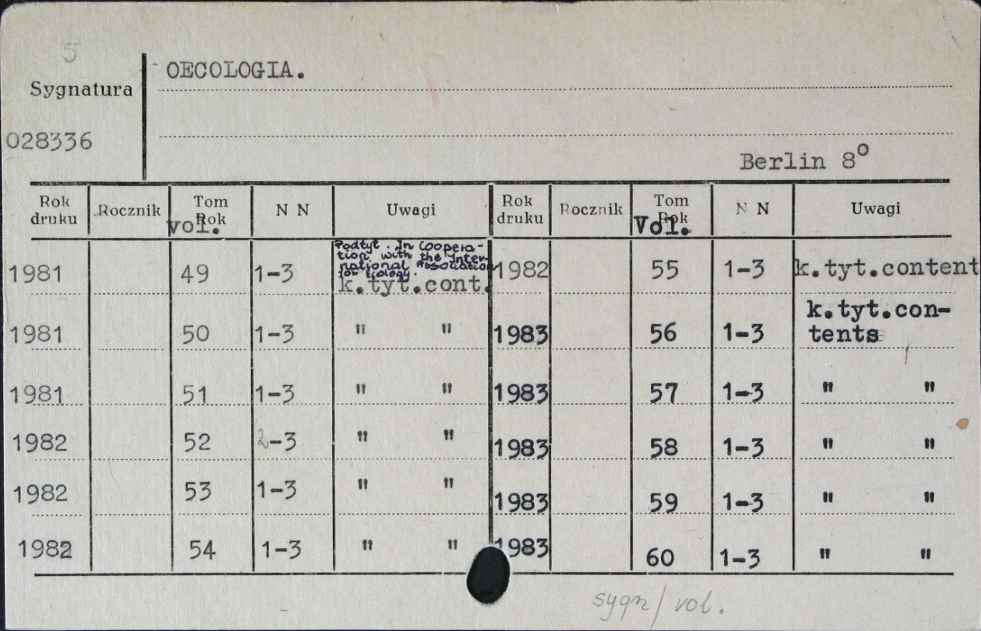 5
OECOLOGIA.
Sygnatura
028336
Berlin 8°
Rok druku Rocznik Tom Rok vol. N N Uwagi Rok druku Rocznik Tom Rok Vol. N N Uwagi
Podtyt. In coopera-
tion with the Inter-
national Association
for Ecology.
1981 49 1-3 k.tyt.cont. 1982 55 1-3 k.tyt.content
k.tyt.con-
1981 50 1-3 " " 1983 56 1-3 tents
1981 51 1-3 " " 1983 57 1-3 " "
1982 52 2-3 " " 1983 58 1-3 " "
1982 53 1-3 " " 1983 59 1-3 " "
1982 54 1-3 " " 1983 60 1-3 " "
sygn/ vol.